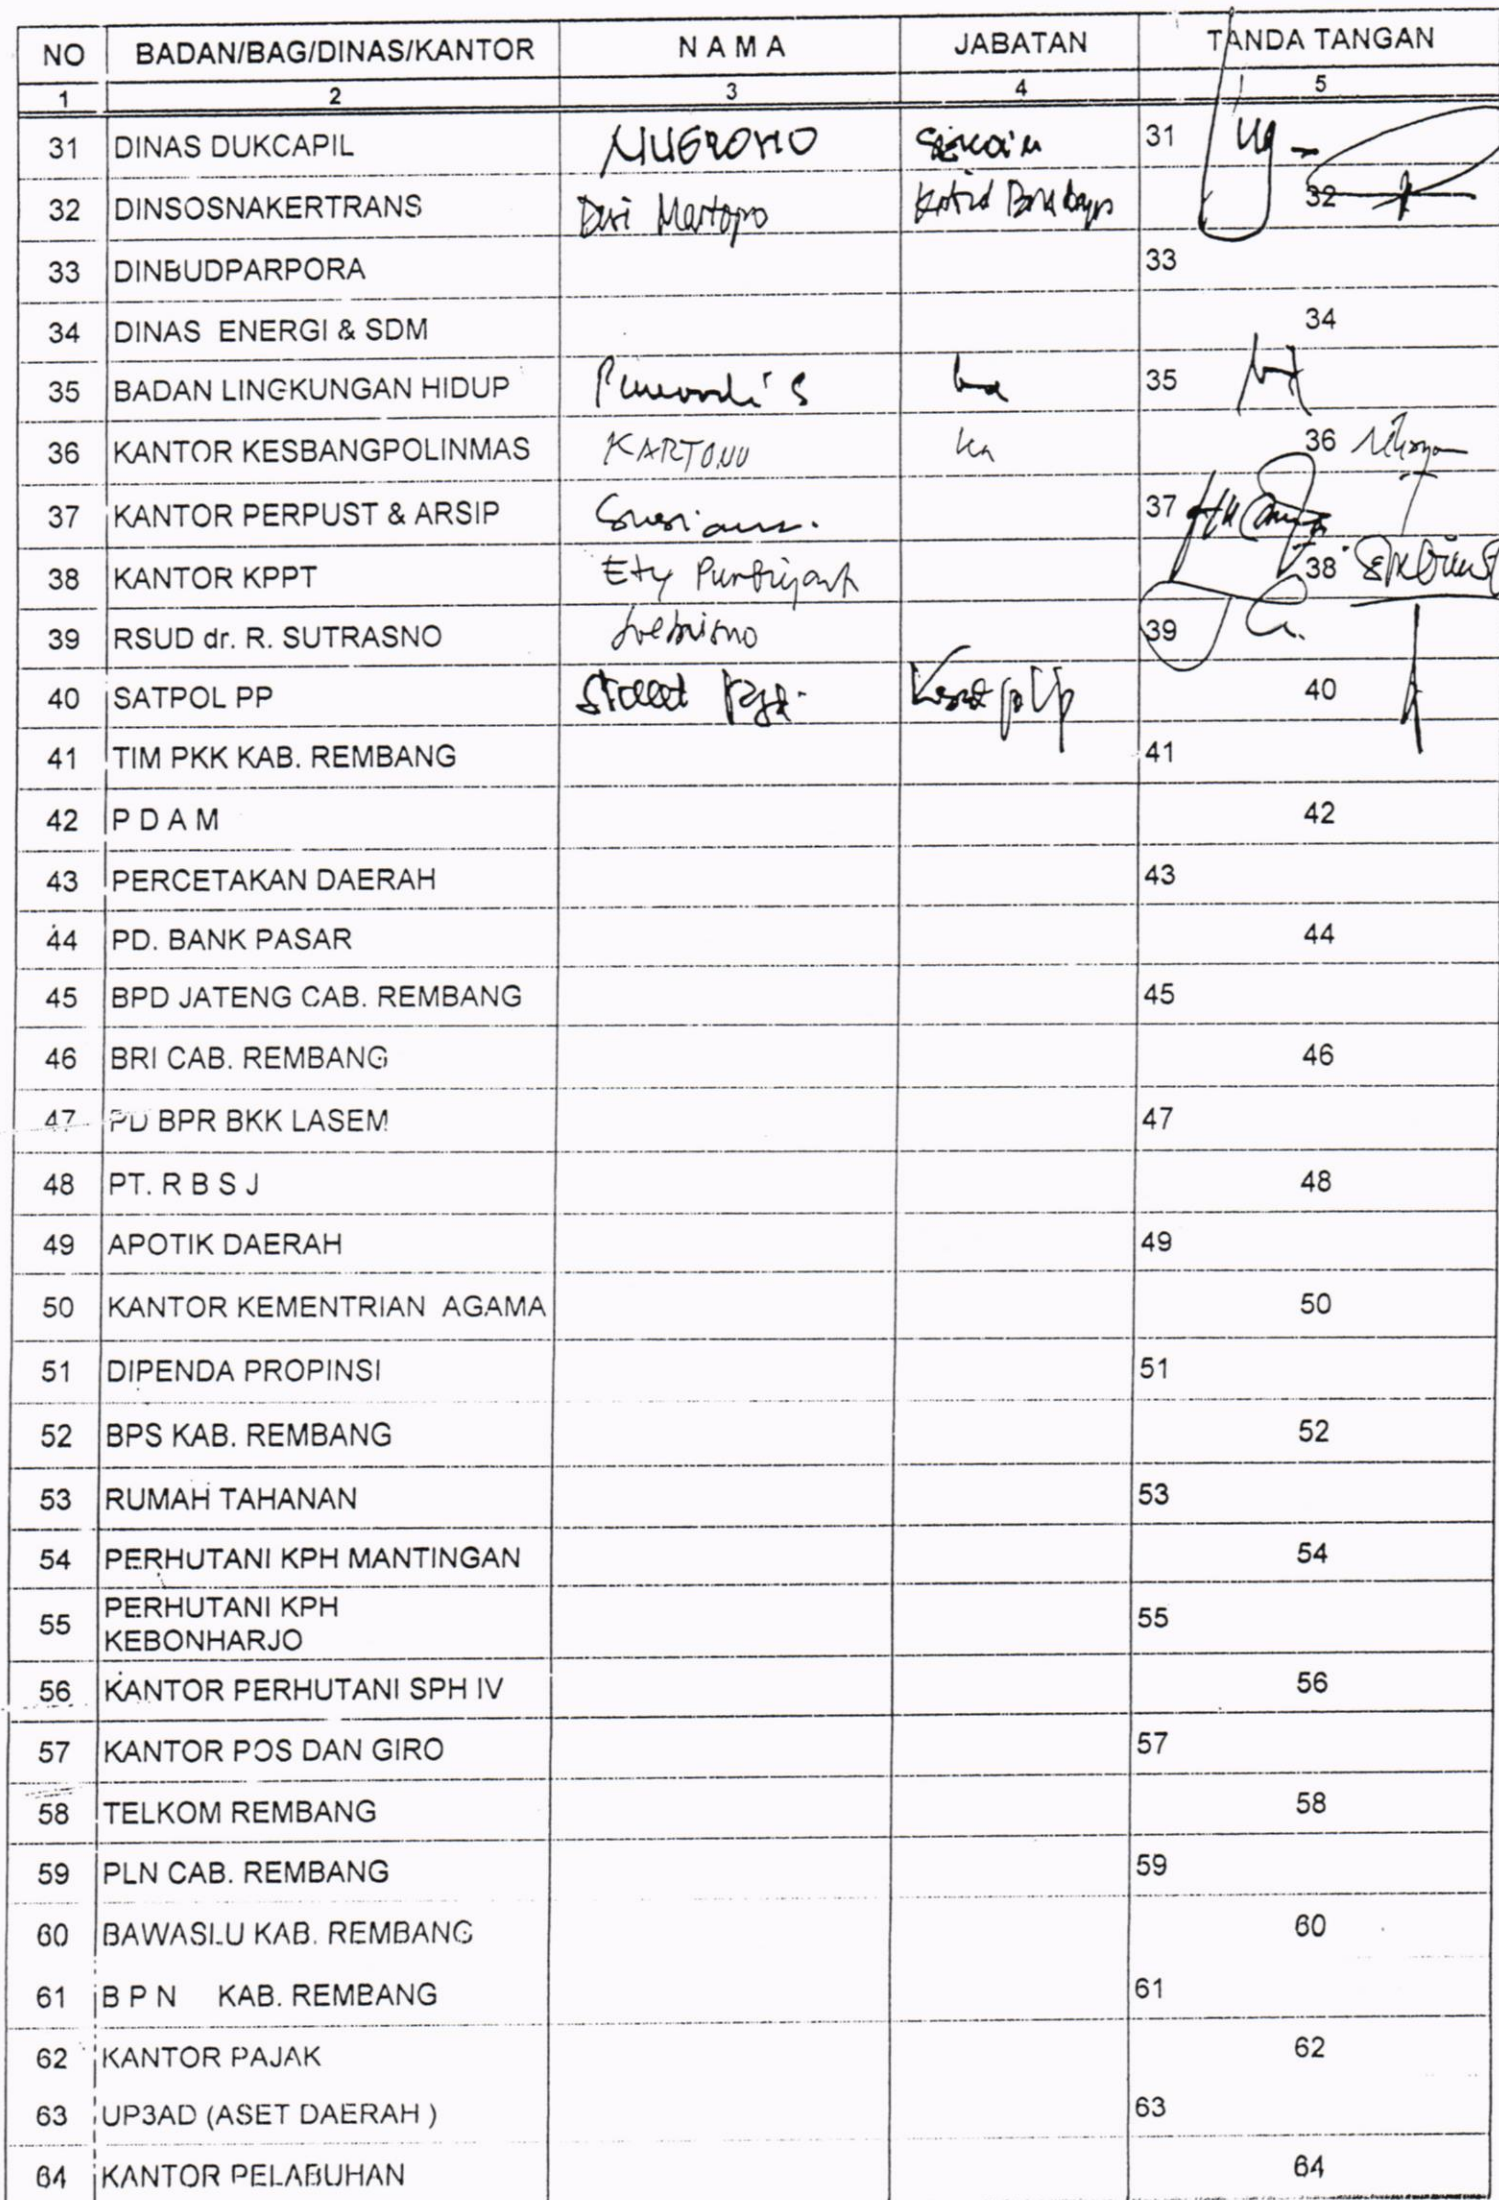 NO BADAN/BAG/DINAS/KANTOR N A M A JABATAN TANDA TANGAN
1 2 3 4 5
31 DINAS DUKCAPIL NUGROHO 31
32 DINSOSNAKERTRANS Dwi Martopo 32
33 DINBUDPARPORA 33
34 DINAS ENERGI & SDM 34
35 BADAN LINGKUNGAN HIDUP 35
36 KANTOR KESBANGPOLINMAS KARTONO Ka 36
37 KANTOR PERPUST & ARSIP 37
38 KANTOR KPPT Ety 38
39 RSUD dr. R. SUTRASNO 39
40 SATPOL PP 40
41 TIM PKK KAB. REMBANG 41
42 P D A M 42
43 PERCETAKAN DAERAH 43
44 PD. BANK PASAR 44
45 BPD JATENG CAB. REMBANG 45
46 BRI CAB. REMBANG 46
47 PD BPR BKK LASEM 47
48 PT. R B S J 48
49 APOTIK DAERAH 49
50 KANTOR KEMENTRIAN AGAMA 50
51 DIPENDA PROPINSI 51
52 BPS KAB. REMBANG 52
53 RUMAH TAHANAN 53
54 PERHUTANI KPH MANTINGAN 54
55 PERHUTANI KPH 55
KEBONHARJO
56 KANTOR PERHUTANI SPH IV 56
57 KANTOR POS DAN GIRO 57
58 TELKOM REMBANG 58
59 PLN CAB. REMBANG 59
60 BAWASLU KAB. REMBANG 60
61 B P N KAB. REMBANG 61
62 KANTOR PAJAK 62
63 UP3AD (ASET DAERAH ) 63
64 KANTOR PELABUHAN 64